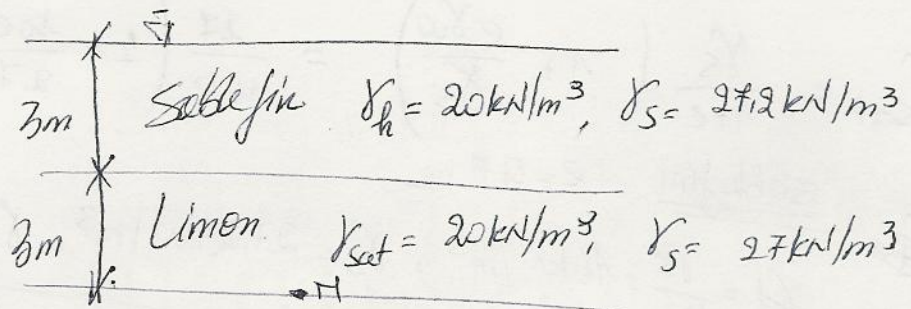 3m Sable fin γh = 20kN/m³, γs = 27,2 kN/m³
3m Limon γsat = 20kN/m³, γs = 27kN/m³
M